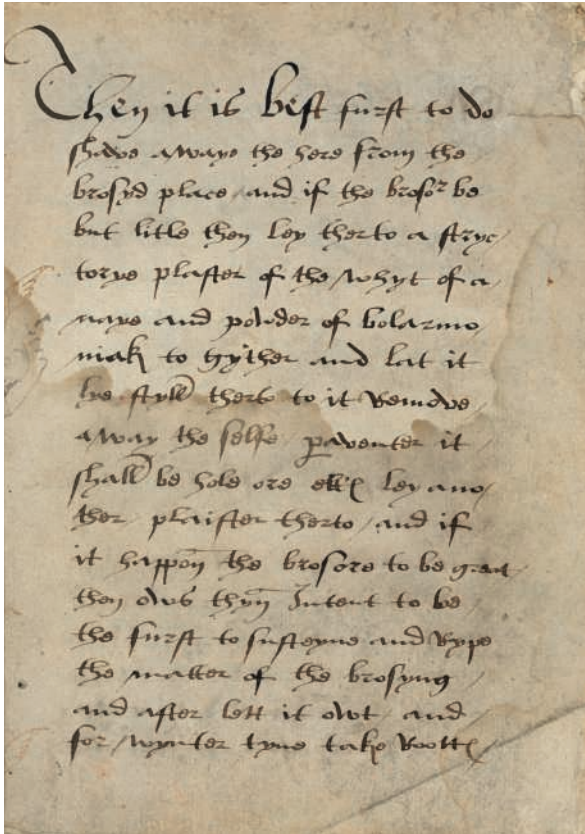 Then it is best furst to do
shave awaye the here from the
brosyd place and if the brosor be
but litle then ley therto a stryc
torye plaster of the whyt of a
naye and powder of bolarmo
niak to gyther and lat it
lye styll therto to it Remove
away the selfe paventer it
shall be hole ore elles ley ano
ther plaister therto and if
it happyn the brosore to be great
then ows thyn Intent to be
the furst to susteyne and Rype
the matter of the brosyng
and after lett it owt and
for wynter tyme take Rottes